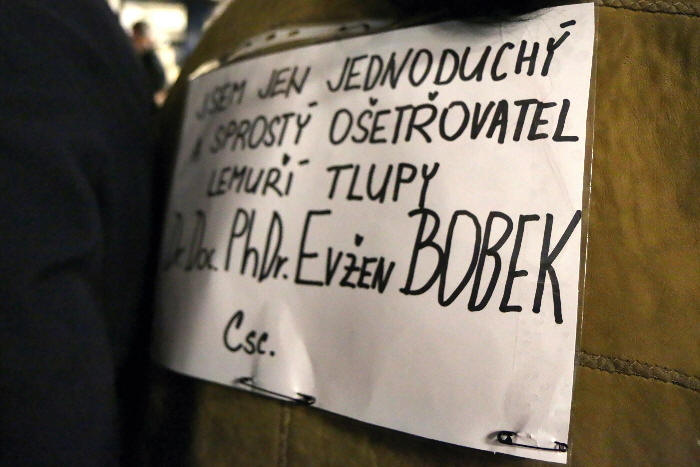 JSEM JEN JEDNODUCHÝ
A SPROSTÝ OŠETŘOVATEL
LEMUŘÍ TLUPY
Dr. Doc. PhDr. EVŽEN BOBEK
Csc.